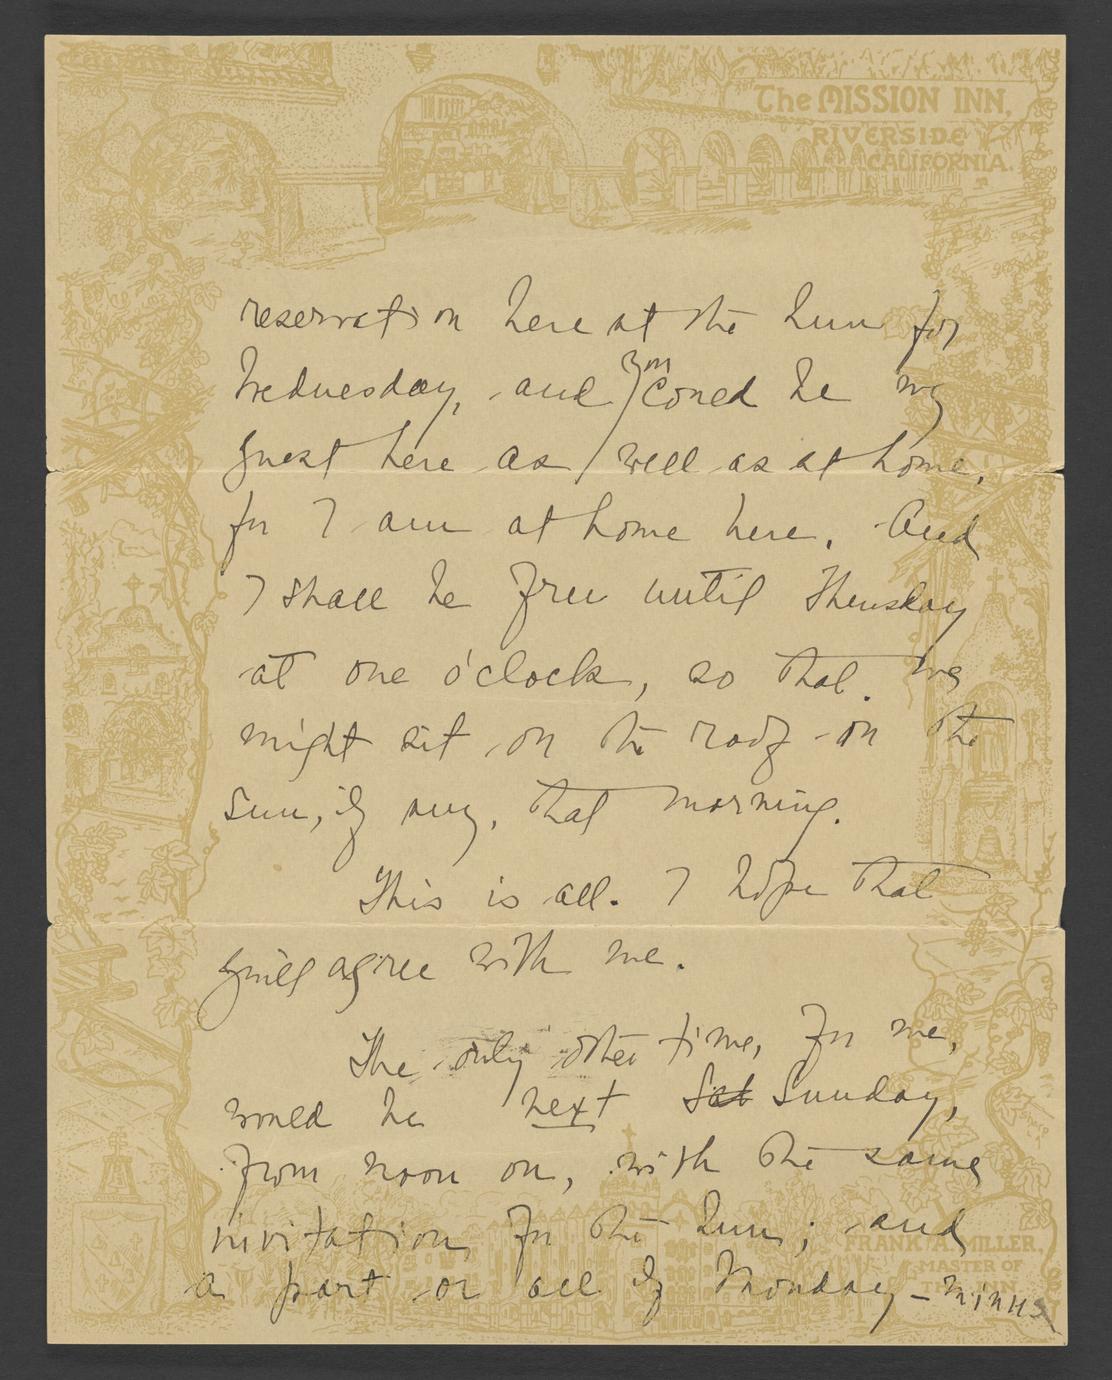 The MISSION INN,
RIVERSIDE
CALIFORNIA.
reservation here at the Inn for
Wednesday, and you could be my
guest here as well as at home,
for I am at home here. And
I shall be free until Thursday
at one o'clock, so that we
might sit on the roof in the
sun, if any, that morning.
This is all. I hope that
you'll agree with me.
The only other time, for me,
would be next Sat Sunday,
from noon on, with the same
invitation for the Inn; and
FRANK A. MILLER,
MASTER OF
a part or all of Monday – minus